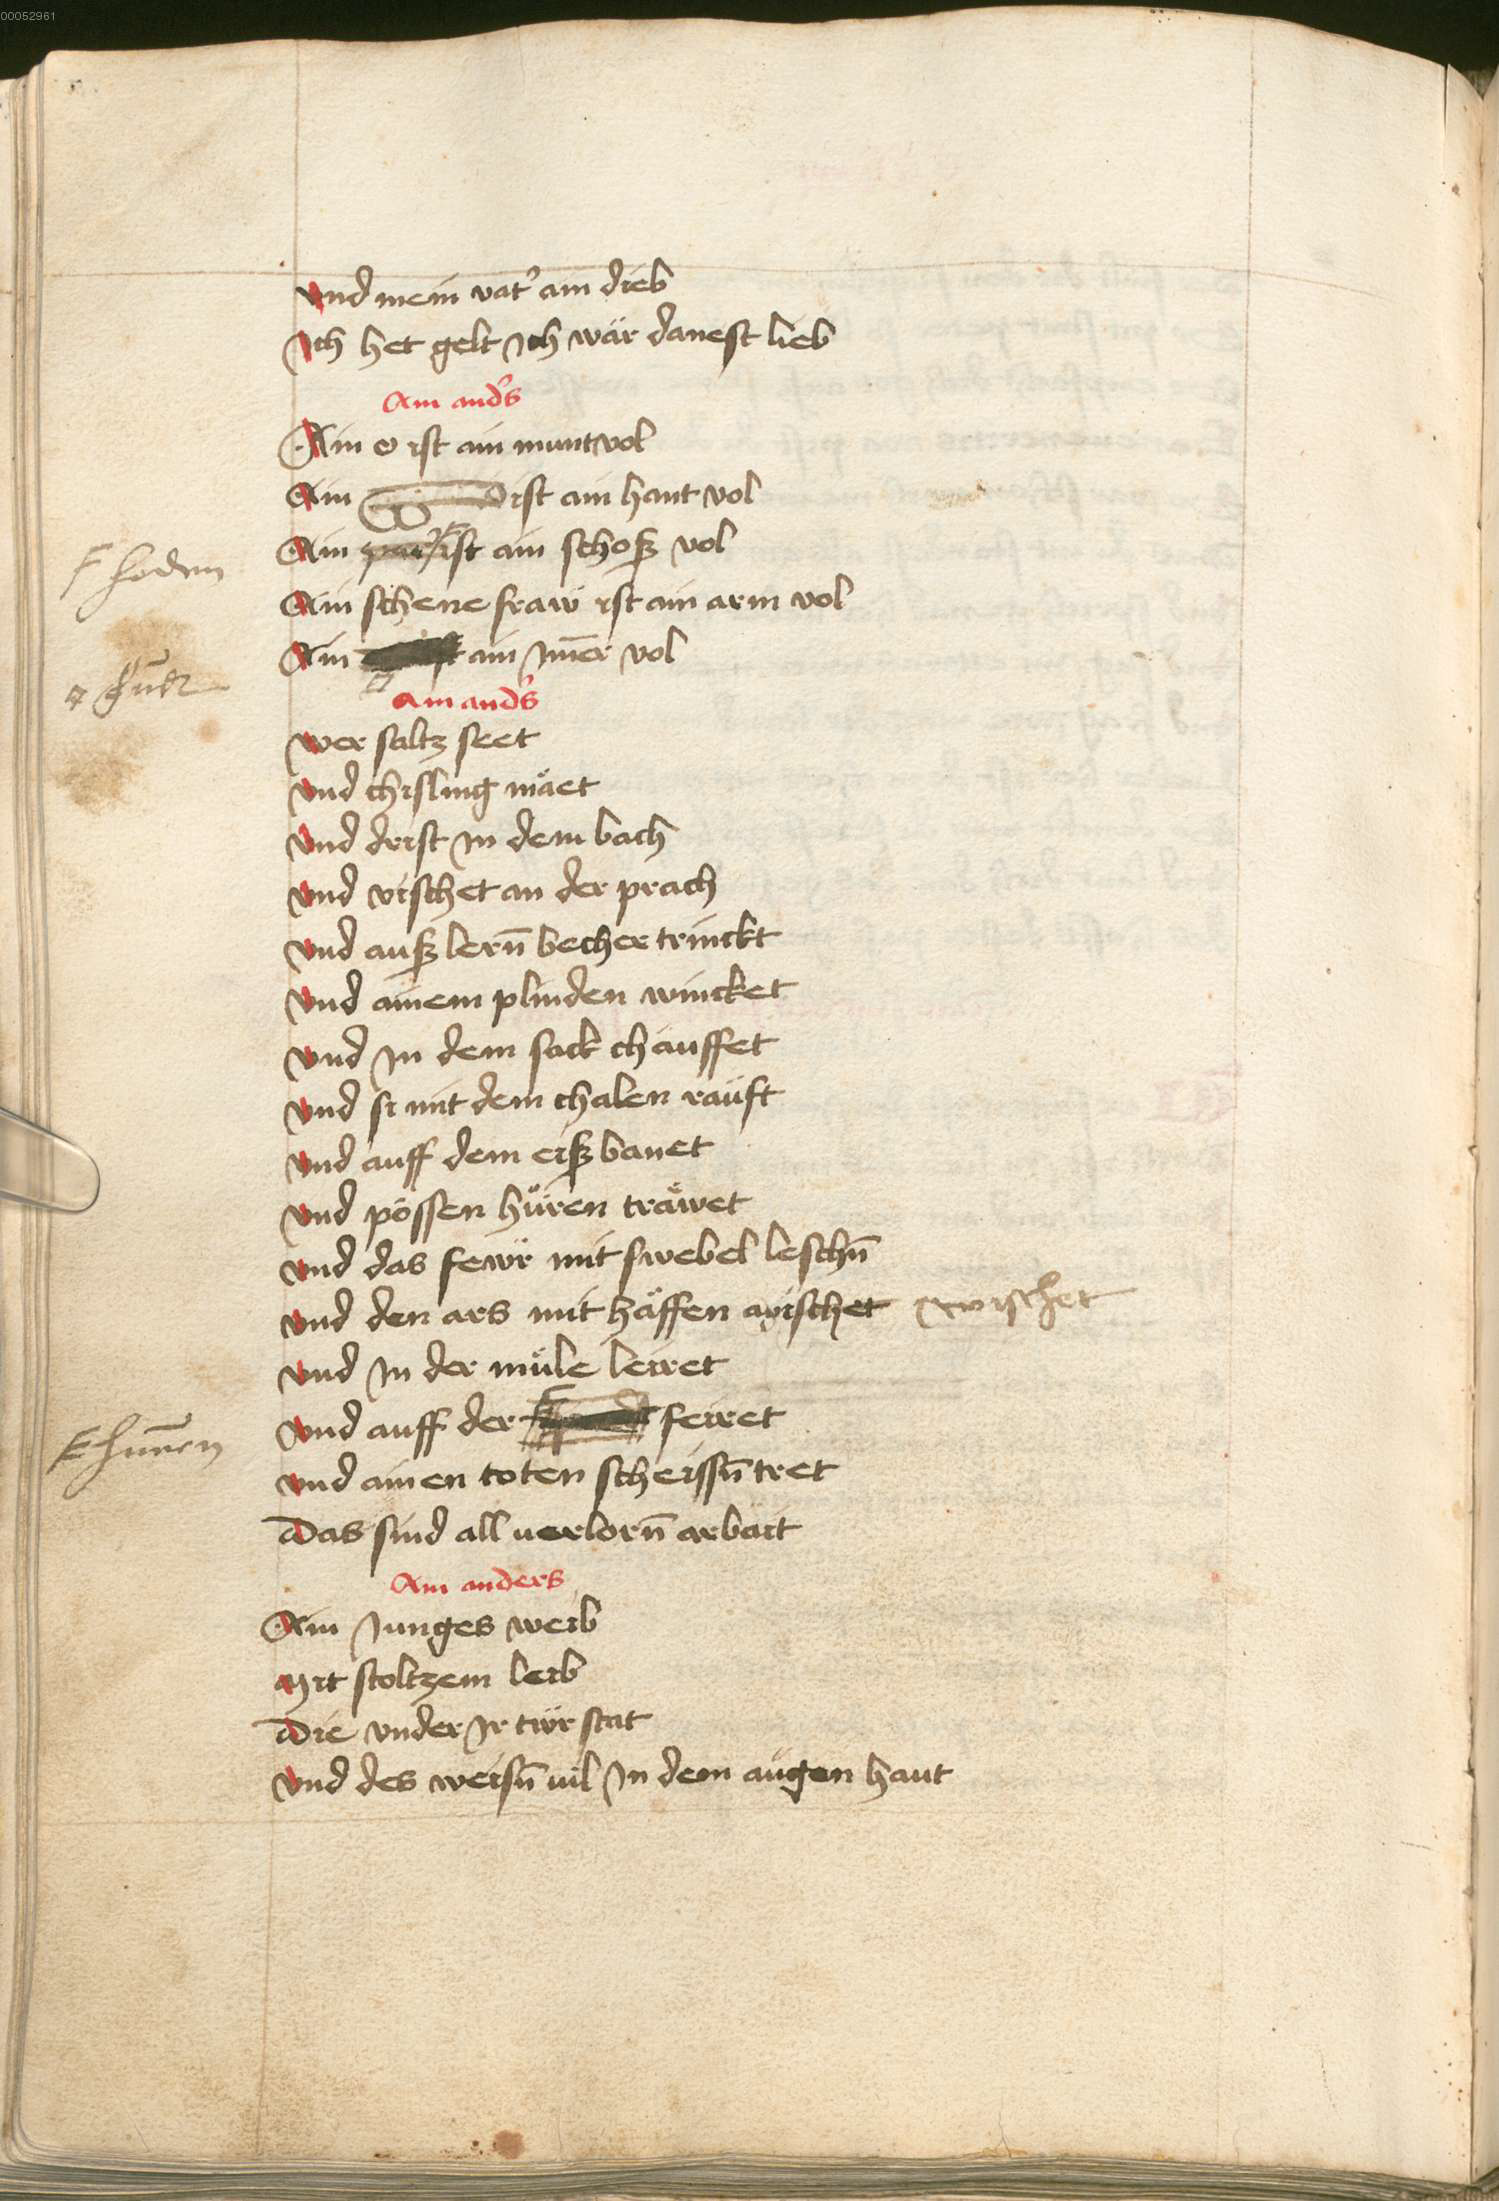 00052961
vnd mein vat' ain dieb
Ich het gelt Ich wär danest lieb
Ain and's
Ain o ist ain muntvol
Ain ist ain hant vol
Ain ist ain schoß vol
hoden
Ain schene fraw ist ain arm vol
Ain ain Jm̄er vol
Ain and's
wer saltz seet
vnd chisling mäet
vnd drist in dem bach
vnd vischet an der prach
vnd auß lern̄ becher trinckt
vnd ainem plinden wincket
vnd in dem sack chauffet
vnd si mit dem chalen räuft
vnd auff dem eiß bauet
vnd pössen hůren träwet
vnd das fewr mit swebel leschn̄
vnd den ars mit häffen wischet wischet
vnd in der můle leiret
vnd auff der feiret
vnd ainen toten scheissn̄ tret
Das sind all verlorn̄ arbait
Ain anders
Ain Junges weib
Mit stoltzem leib
Die vnder Ir tür stat
vnd des weisn̄ vil In dem augen hant